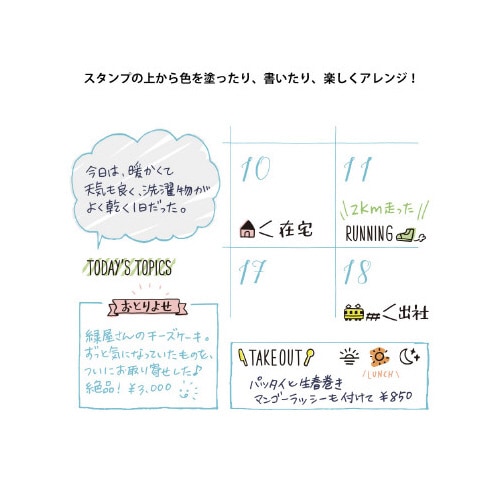 スタンプの上から色を塗ったり、書いたり、楽しくアレンジ！
今日は、暖かくて
天気も良く、洗濯物が
よく乾く1日だった。
TODAY'S TOPICS
おとりよせ
緑屋さんのチーズケーキ。
ずっと気になっていたものを、
ついにお取り寄せした♪
絶品！ ¥3,000
10
11
在宅
2km走った
RUNNING
17
18
出社
TAKEOUT
LUNCH
パッタイと生春巻き
マンゴーラッシーも付けて ¥850